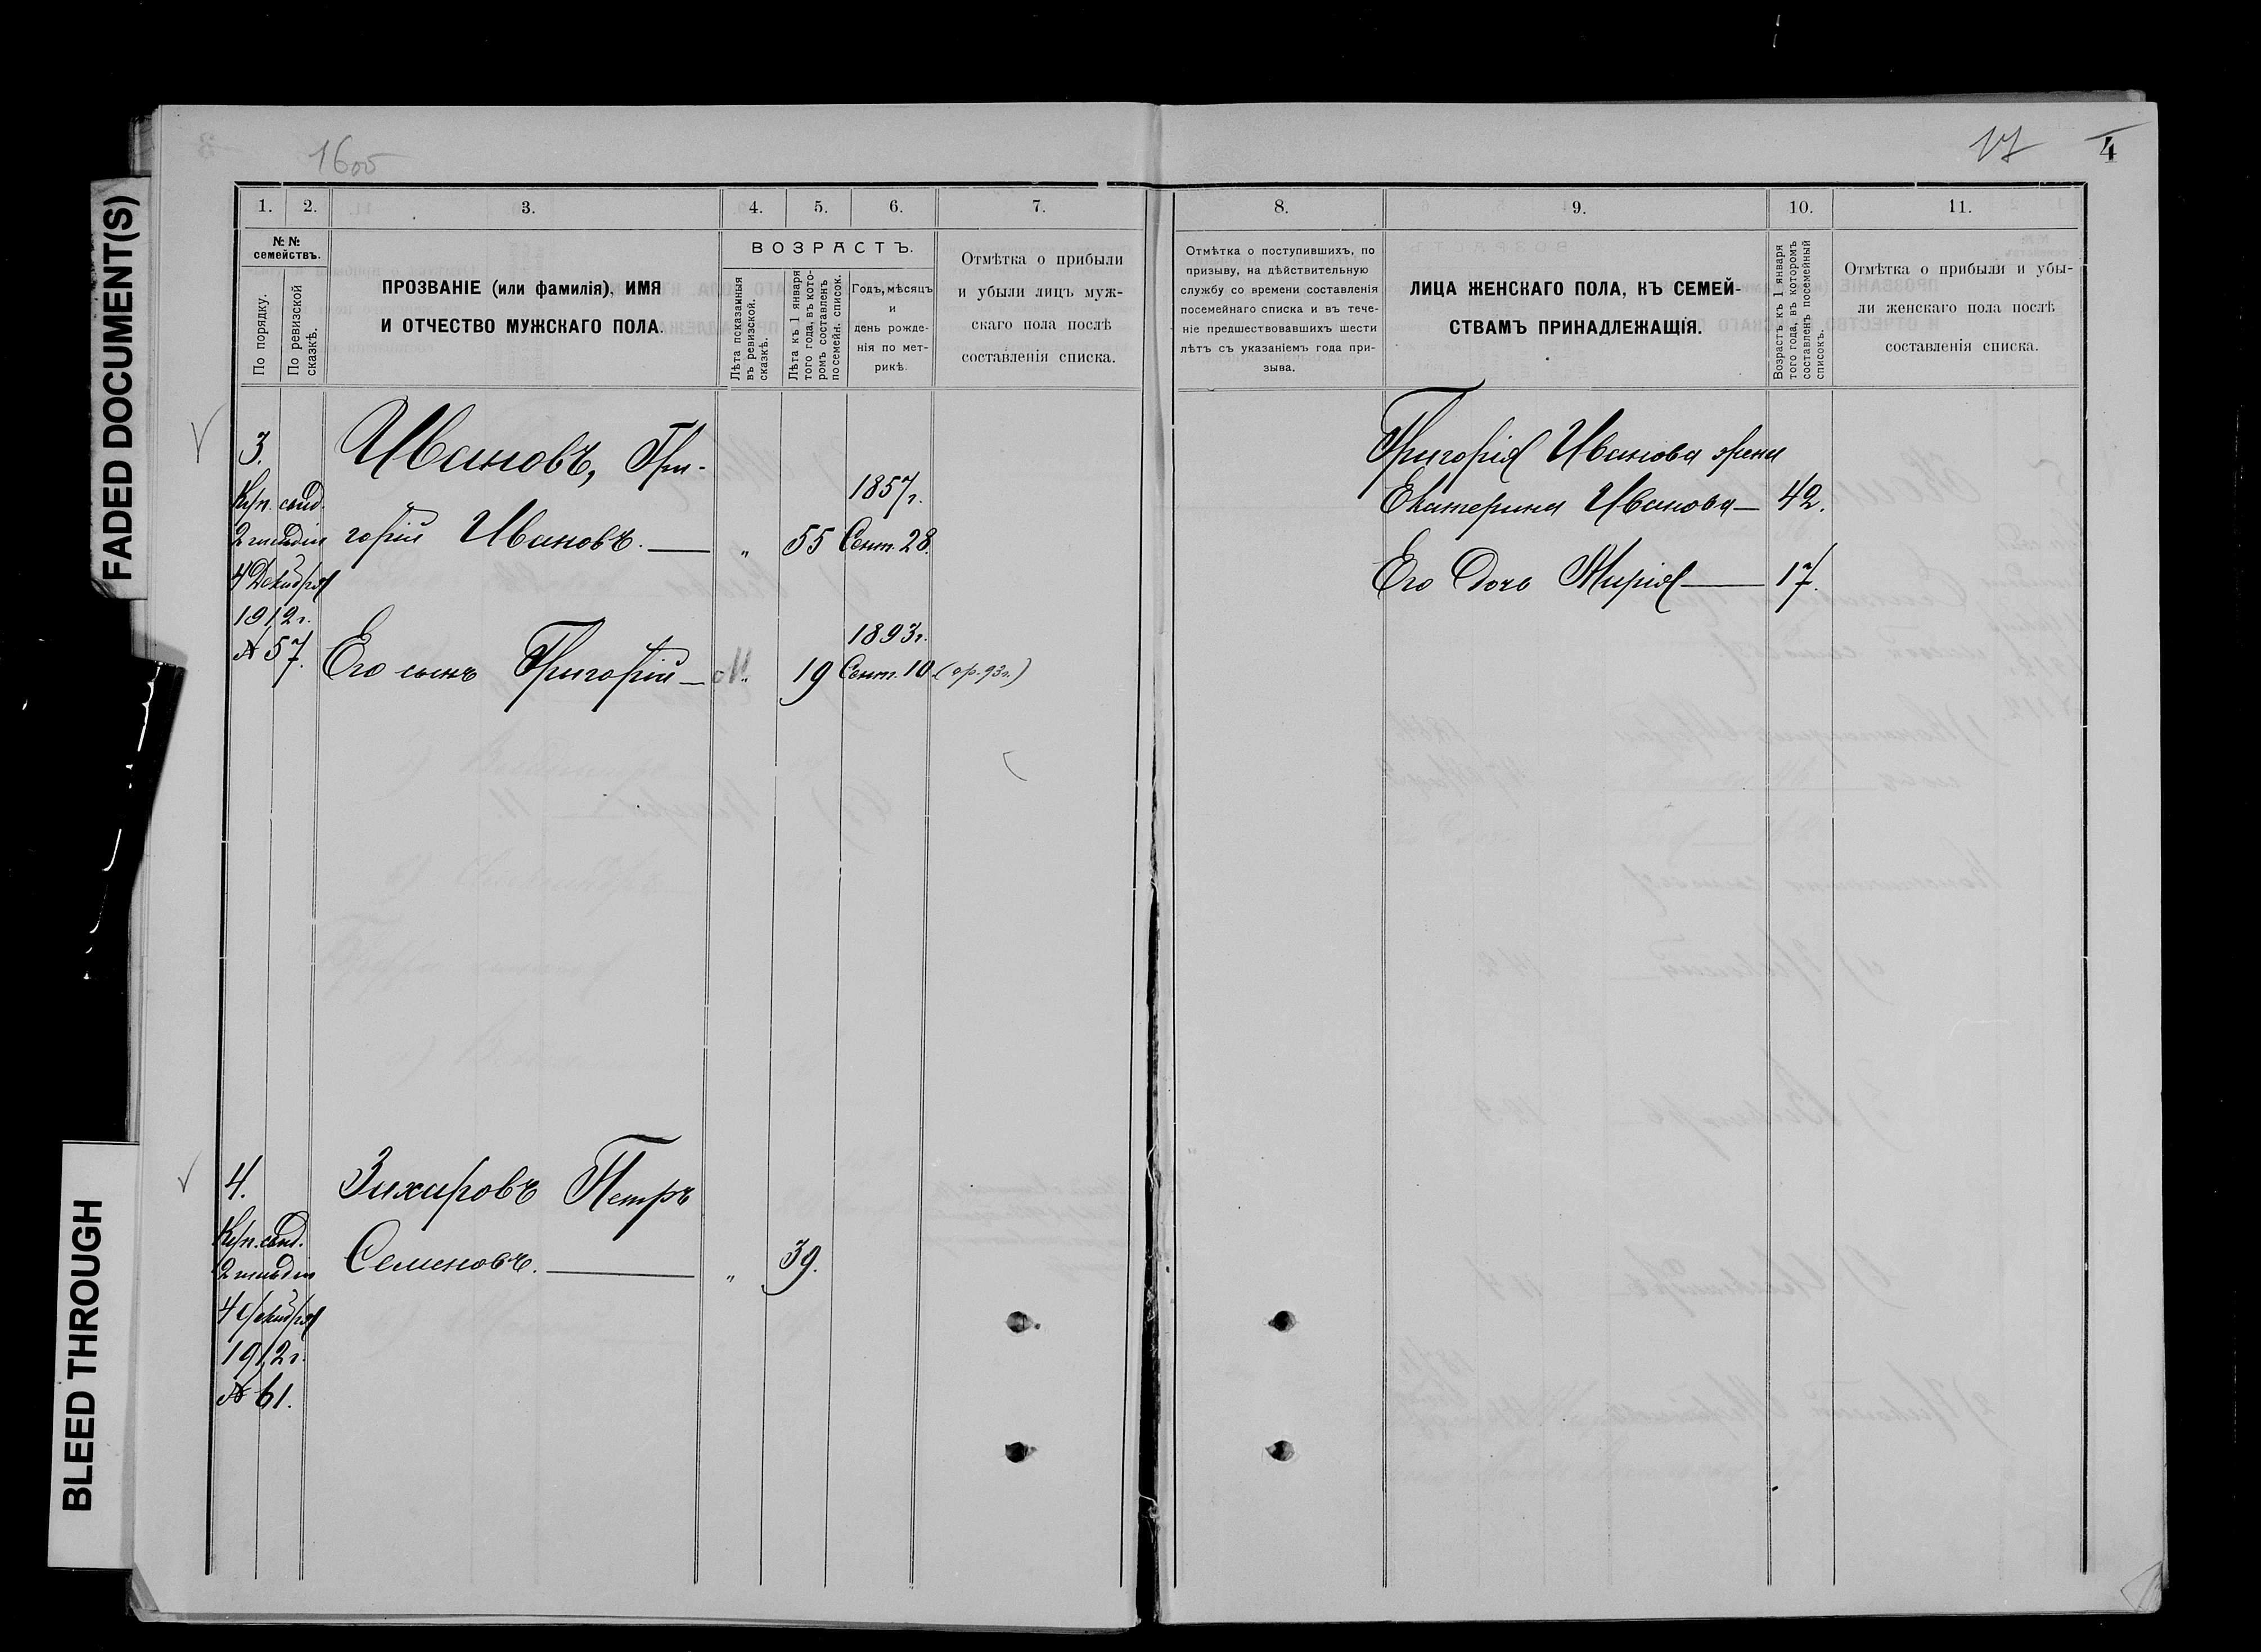 FADED DOCUMENT(S)
BLEED THROUGH
1600
17
4
1.
2.
3.
4.
5.
6.
7.
№ №
семействъ.
По порядку.
По ревизской
сказкѣ.
ПРОЗВАНІЕ (или фамилія), ИМЯ
И ОТЧЕСТВО МУЖСКАГО ПОЛА.
ВОЗРАСТЪ.
Лѣта показанныя
въ ревизской.
сказкѣ.
Лѣта къ 1 января
того года, въ кото-
ромъ составленъ
посемейн. список.
Годъ, мѣсяцъ
и
день рожде-
нія по мет-
рикѣ.
Отмѣтка о прибыли
и убыли лицъ муж-
скаго пола послѣ
составленія списка.
3.
Куп. свид.
2 гильдіи
4 Декабря
1912 г.
№ 57.
Ивановъ, Гри-
горій Ивановъ. — „ 55
1857 г.
Сент. 28.
Его сынъ Григорій — 19
1893 г.
Сент. 10 (пр. 93 г.)
4.
Куп. свид.
2 гильдіи
4 Декабря
1912 г.
№ 61.
Захаровъ Петръ
Семеновъ. — „ 39.
8.
9.
10.
11.
Отмѣтка о поступившихъ, по
призыву, на дѣйствительную
службу со времени составленія
посемейнаго списка и въ тече-
ніе предшествовавшихъ шести
лѣтъ съ указаніемъ года при-
зыва.
ЛИЦА ЖЕНСКАГО ПОЛА, КЪ СЕМЕЙ-
СТВАМЪ ПРИНАДЛЕЖАЩІЯ.
Возрастъ къ 1 января
того года, въ которомъ
составленъ посемейный
списокъ.
Отмѣтка о прибыли и убы-
ли женскаго пола послѣ
составленія списка.
Григорія Иванова жена
Екатерина Иванова — 42.
Его дочь Марія — 17.